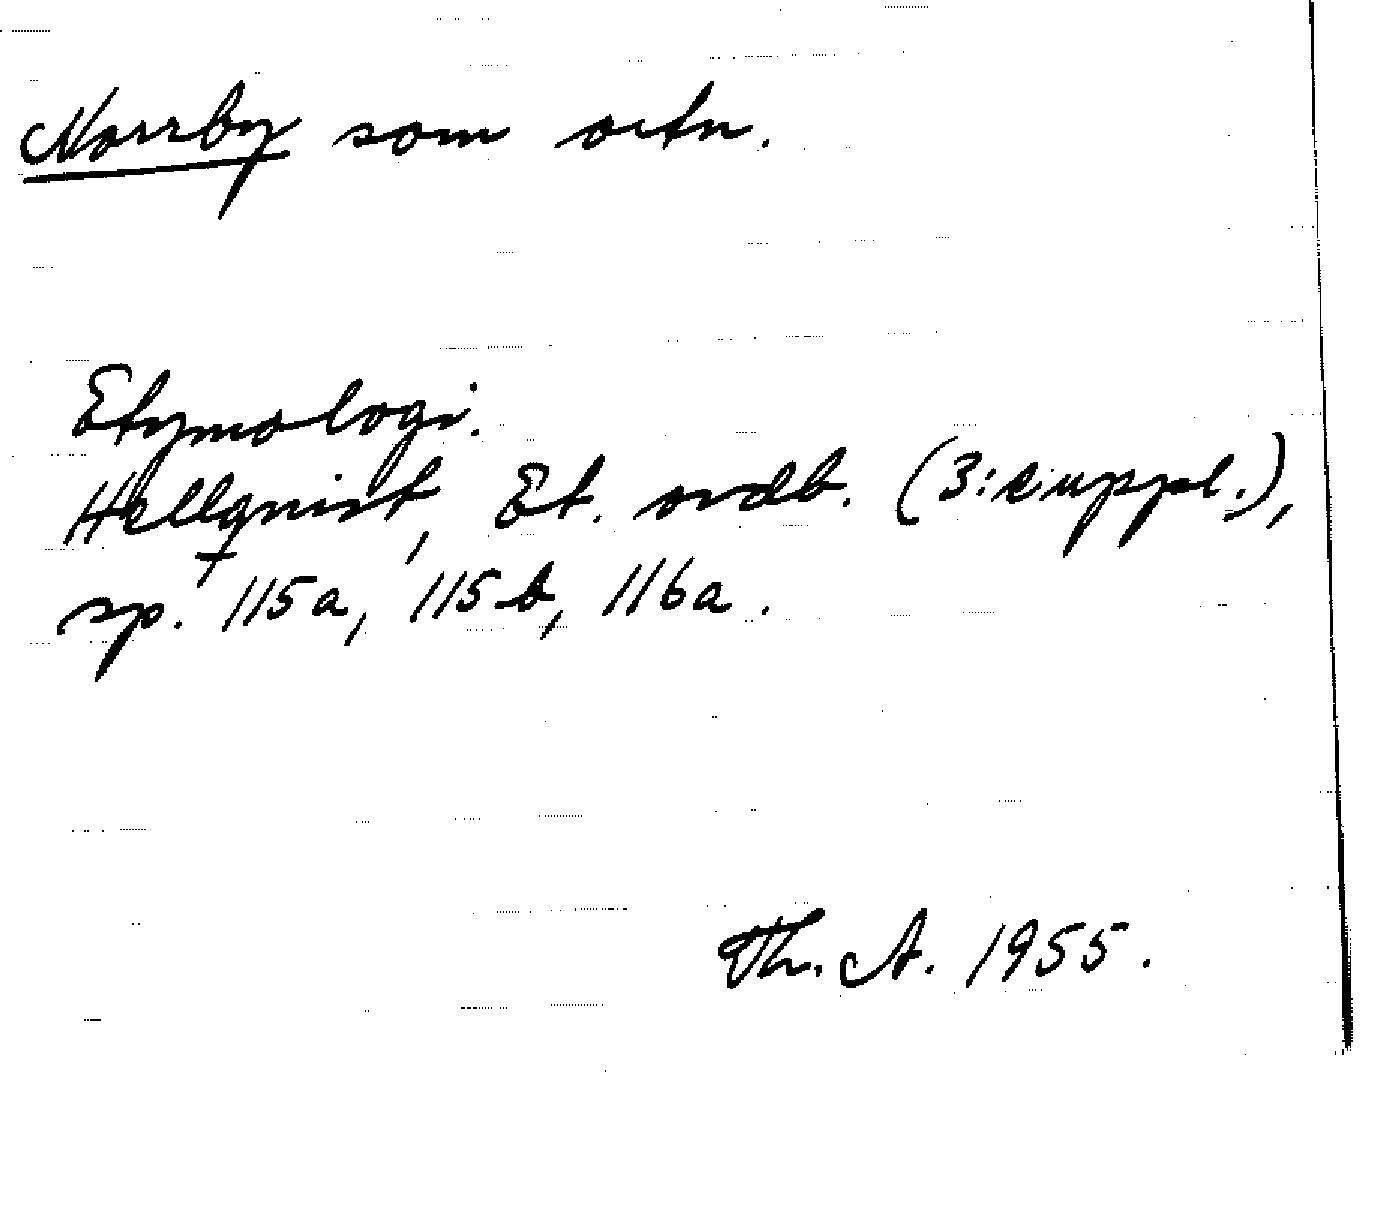 Norrby som ortn.
Etymologi.
Hellqvist, Et. ordb. (3:e uppl.),
sp. 115a, 115b, 116a.
Th. A. 1955.